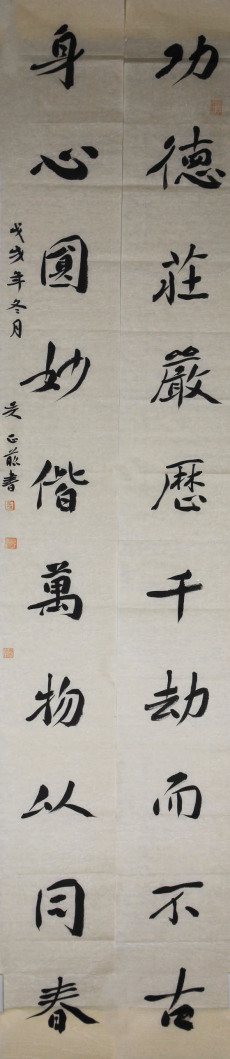 功德莊嚴歷千劫而不古
身心圓妙偕萬物以同春
戊戌年冬月
書